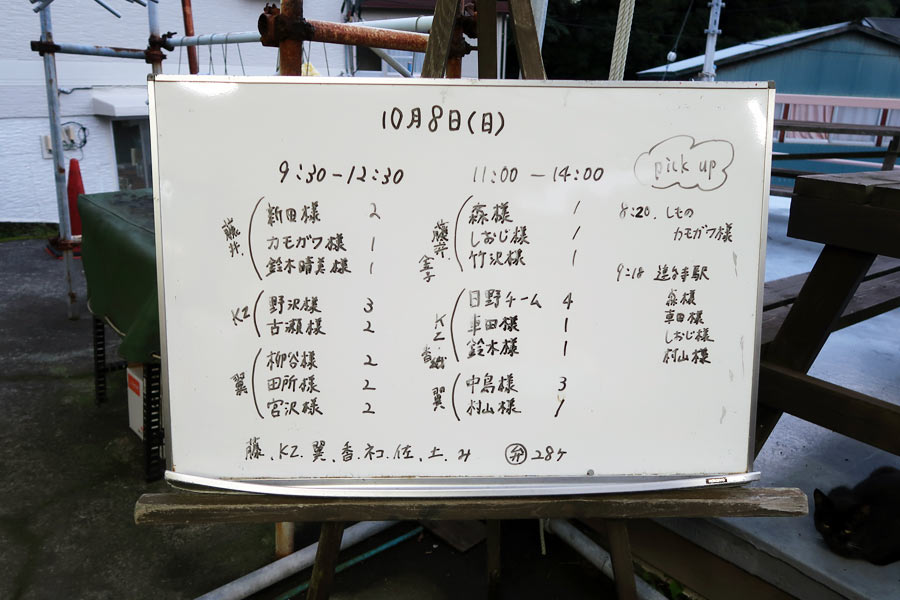 10月8日(日)
9:30-12:30
藤井
新田様 2
カモガワ様 1
鈴木晴美様 1
KZ
野沢様 3
古瀬様 2
翼
柳谷様 2
田所様 2
宮沢様 2
11:00-14:00
藤井
金子
森様 1
しおじ様 1
竹沢様 1
KZ・香・
日野チーム 4
車田様 1
鈴木様 1
翼
中島様 3
村山様 1
pick up
8:20. しもの
カモガワ様
9:18 追合寺駅
森様
車田様
しおじ様
村山様
藤、KZ.翼、香.ネコ.佐、土.み
弁 28ヶ